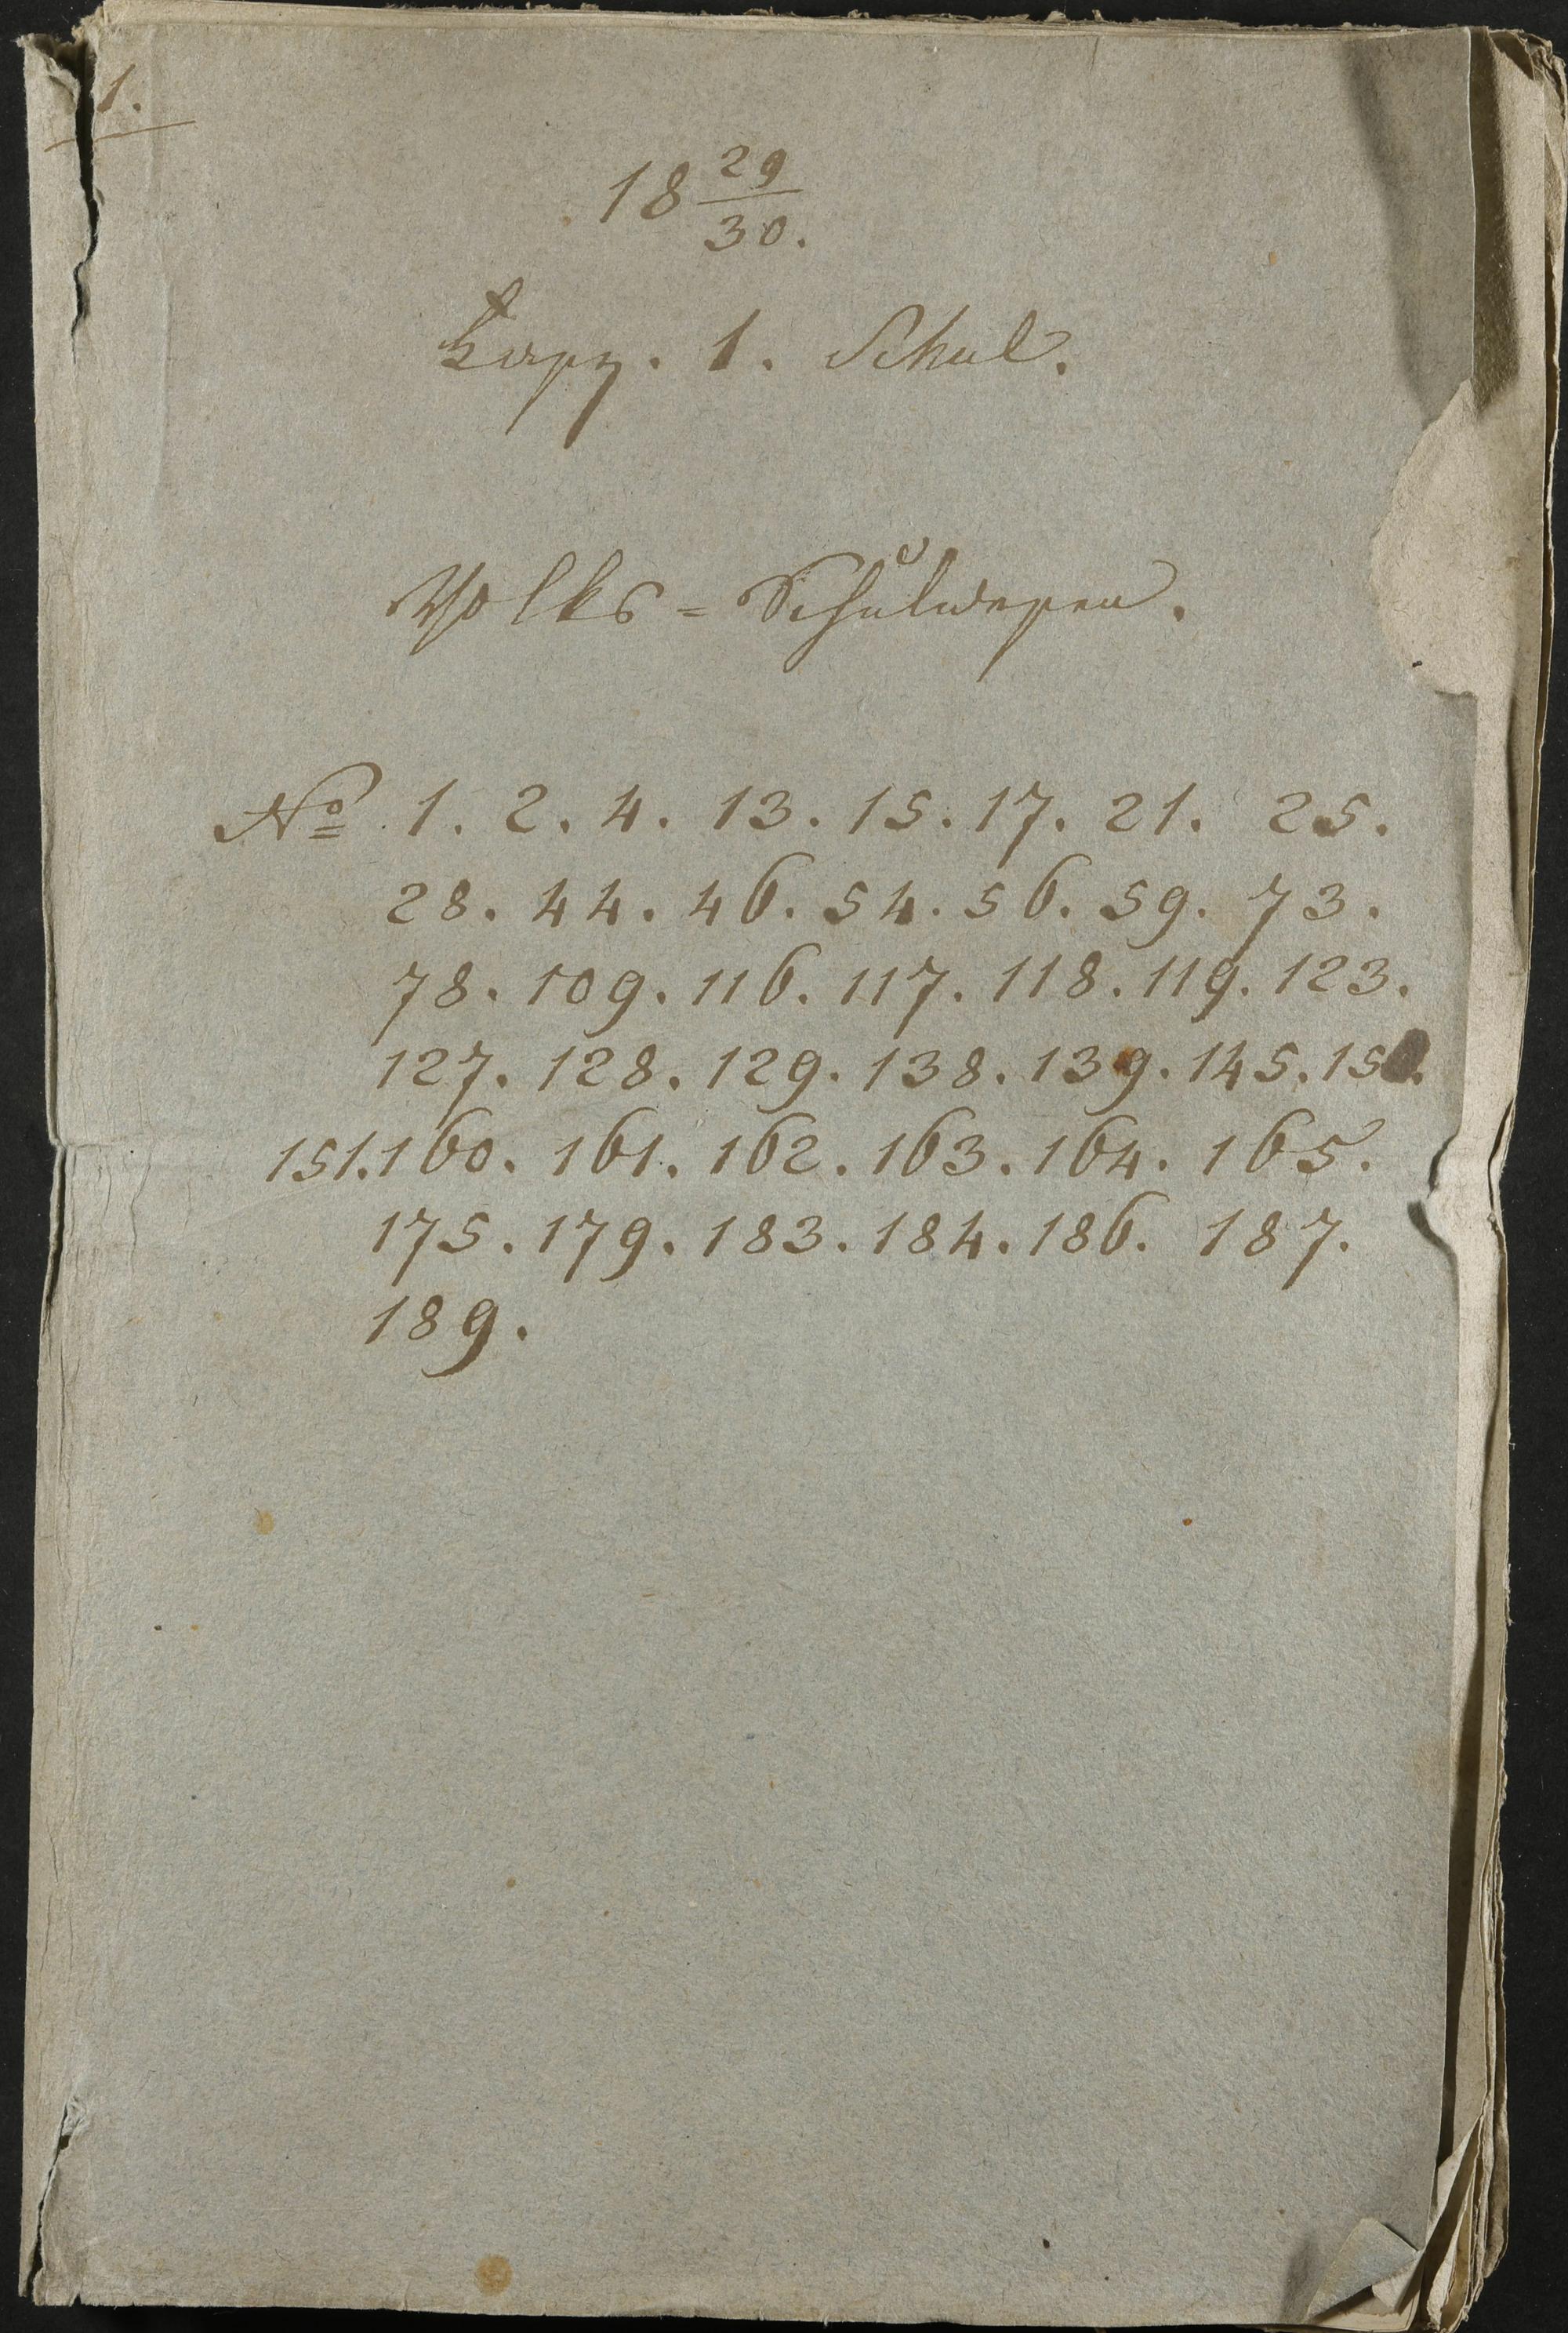 1.
18 29/30.
1. Schul.
Volks=Schulwesen.
No 1. 2. 4. 13. 15. 17. 21. 25.
28. 44. 46. 54. 56. 59. 73.
78. 109. 116. 117. 118. 119. 123.
127. 128. 129. 138. 139. 145. 150.
151. 160. 161. 162. 163. 164. 165.
175. 179. 183. 184. 186. 187.
189.